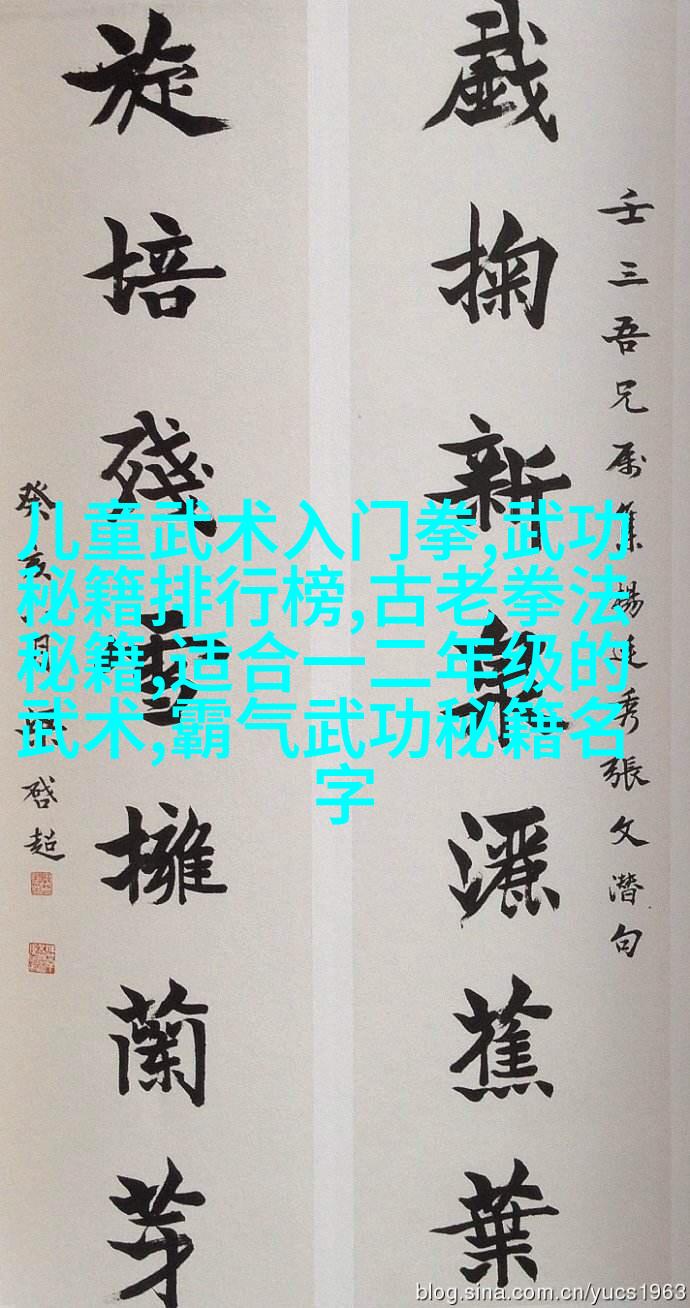 戱掬新灑蕉葉
壬三吾兄属集楊廷秀張文潛句
旋培殘擁蘭芽
癸亥月啓超
儿童武术入门拳,武功
秘籍排行榜,古老拳法
秘籍,适合一二年级的
武术,霸气武功秘籍名
字
blog.sina.com.cn/yucs1963